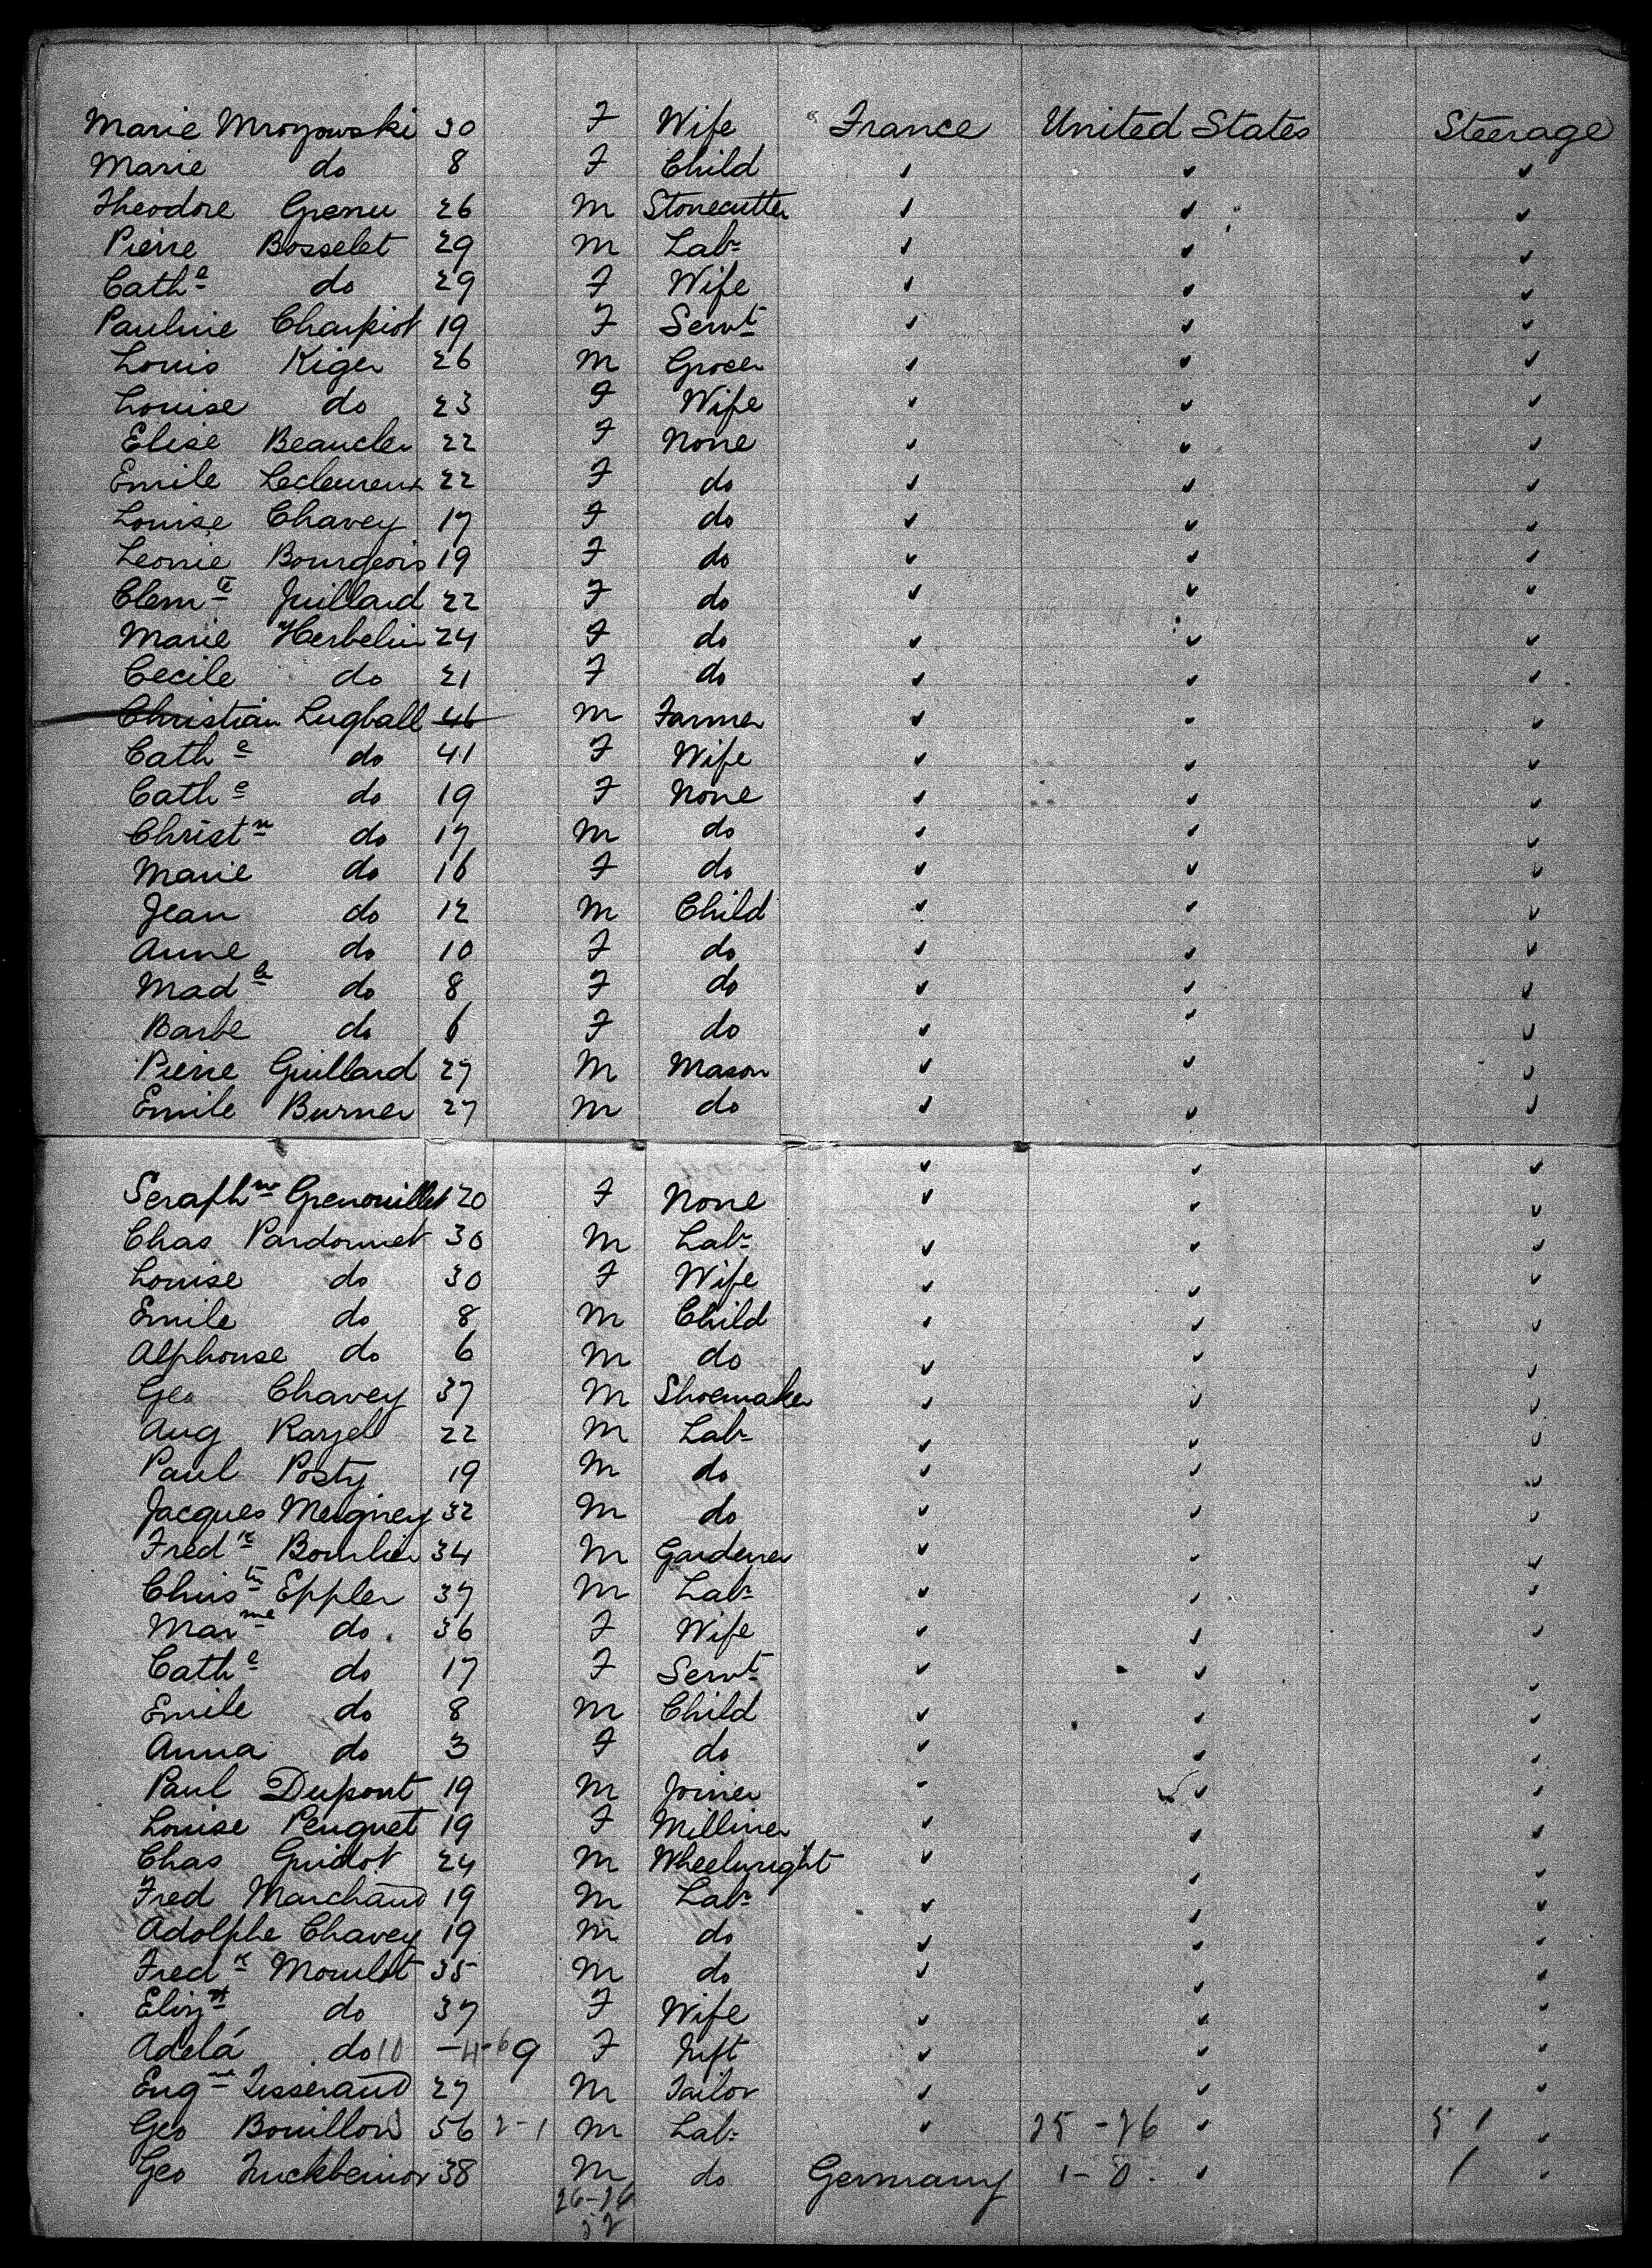 Marie Mrozowski 30 F Wife France United States Steerage
Marie do 8 F Child ✓ ✓ ✓
Theodore Grenu 26 M Stonecutter ✓ ✓ ✓
Pierre Bosselet 29 M Labr ✓ ✓ ✓
Cathe do 29 F Wife ✓ ✓ ✓
Pauline Charpiot 19 F Servt ✓ ✓ ✓
Louis Kiger 26 M Grocer ✓ ✓ ✓
Louise do 23 F Wife ✓ ✓ ✓
Elise Beaucler 22 F None ✓ ✓ ✓
Emile 22 F do ✓ ✓ ✓
Louise Chavey 17 F do ✓ ✓ ✓
Leonie Bourgeois 19 F do ✓ ✓ ✓
Clemce Juillard 22 F do ✓ ✓ ✓
Marie Herbelin 24 F do ✓ ✓ ✓
Cecile do 21 F do ✓ ✓ ✓
Christian Lugball 46 M Farmer ✓ ✓ ✓
Cathe do 41 F Wife ✓ ✓ ✓
Cathe do 19 F None ✓ ✓ ✓
Christn do 17 M do ✓ ✓ ✓
Marie do 16 F do ✓ ✓ ✓
Jean do 12 M Child ✓ ✓ ✓
Anne do 10 F do ✓ ✓ ✓
Made do 8 F do ✓ ✓ ✓
Barbe do 6 F do ✓ ✓ ✓
Pierre Guillard 27 M Mason ✓ ✓ ✓
Emile Burner 27 M do ✓ ✓ ✓
Seraphne Grenouillet 20 F None ✓ ✓ ✓
Chas Pardonnet 30 M Labr ✓ ✓ ✓
Louise do 30 F Wife ✓ ✓ ✓
Emile do 8 M Child ✓ ✓ ✓
Alphonse do 6 M do ✓ ✓ ✓
Geo Chavey 37 M Shoemaker ✓ ✓ ✓
Aug Rayel 22 M Labr ✓ ✓ ✓
Paul Posty 19 M do ✓ ✓ ✓
Jacques Meigney 32 M do ✓ ✓ ✓
Fredk Bourlier 34 M Gardener ✓ ✓ ✓
Christn Eppler 37 M Labr ✓ ✓ ✓
Marme do 36 F Wife ✓ ✓ ✓
Cathe do 17 F Servt ✓ ✓ ✓
Emile do 8 M Child ✓ ✓ ✓
Anna do 3 F do ✓ ✓ ✓
Paul Dupont 19 M Joiner ✓ ✓ ✓
Louise Peuguet 19 F Milliner ✓ ✓ ✓
Chas Guidot 24 M Wheelwright ✓ ✓ ✓
Fred Marchand 19 M Labr ✓ ✓ ✓
Adolphe Chavey 19 M do ✓ ✓ ✓
Fredk Mourlot 35 M do ✓ ✓ ✓
Elizth do 37 F Wife ✓ ✓ ✓
Adela do 10 9 F Inft ✓ ✓ ✓
Engne Tisserand 27 M Tailor ✓ ✓ ✓
Geo Bouillon 56 2-1 M Labr ✓ 25-26 ✓ 51 ✓
Geo 38 M do Germany 1-0 ✓ 1 ✓
26-26
52